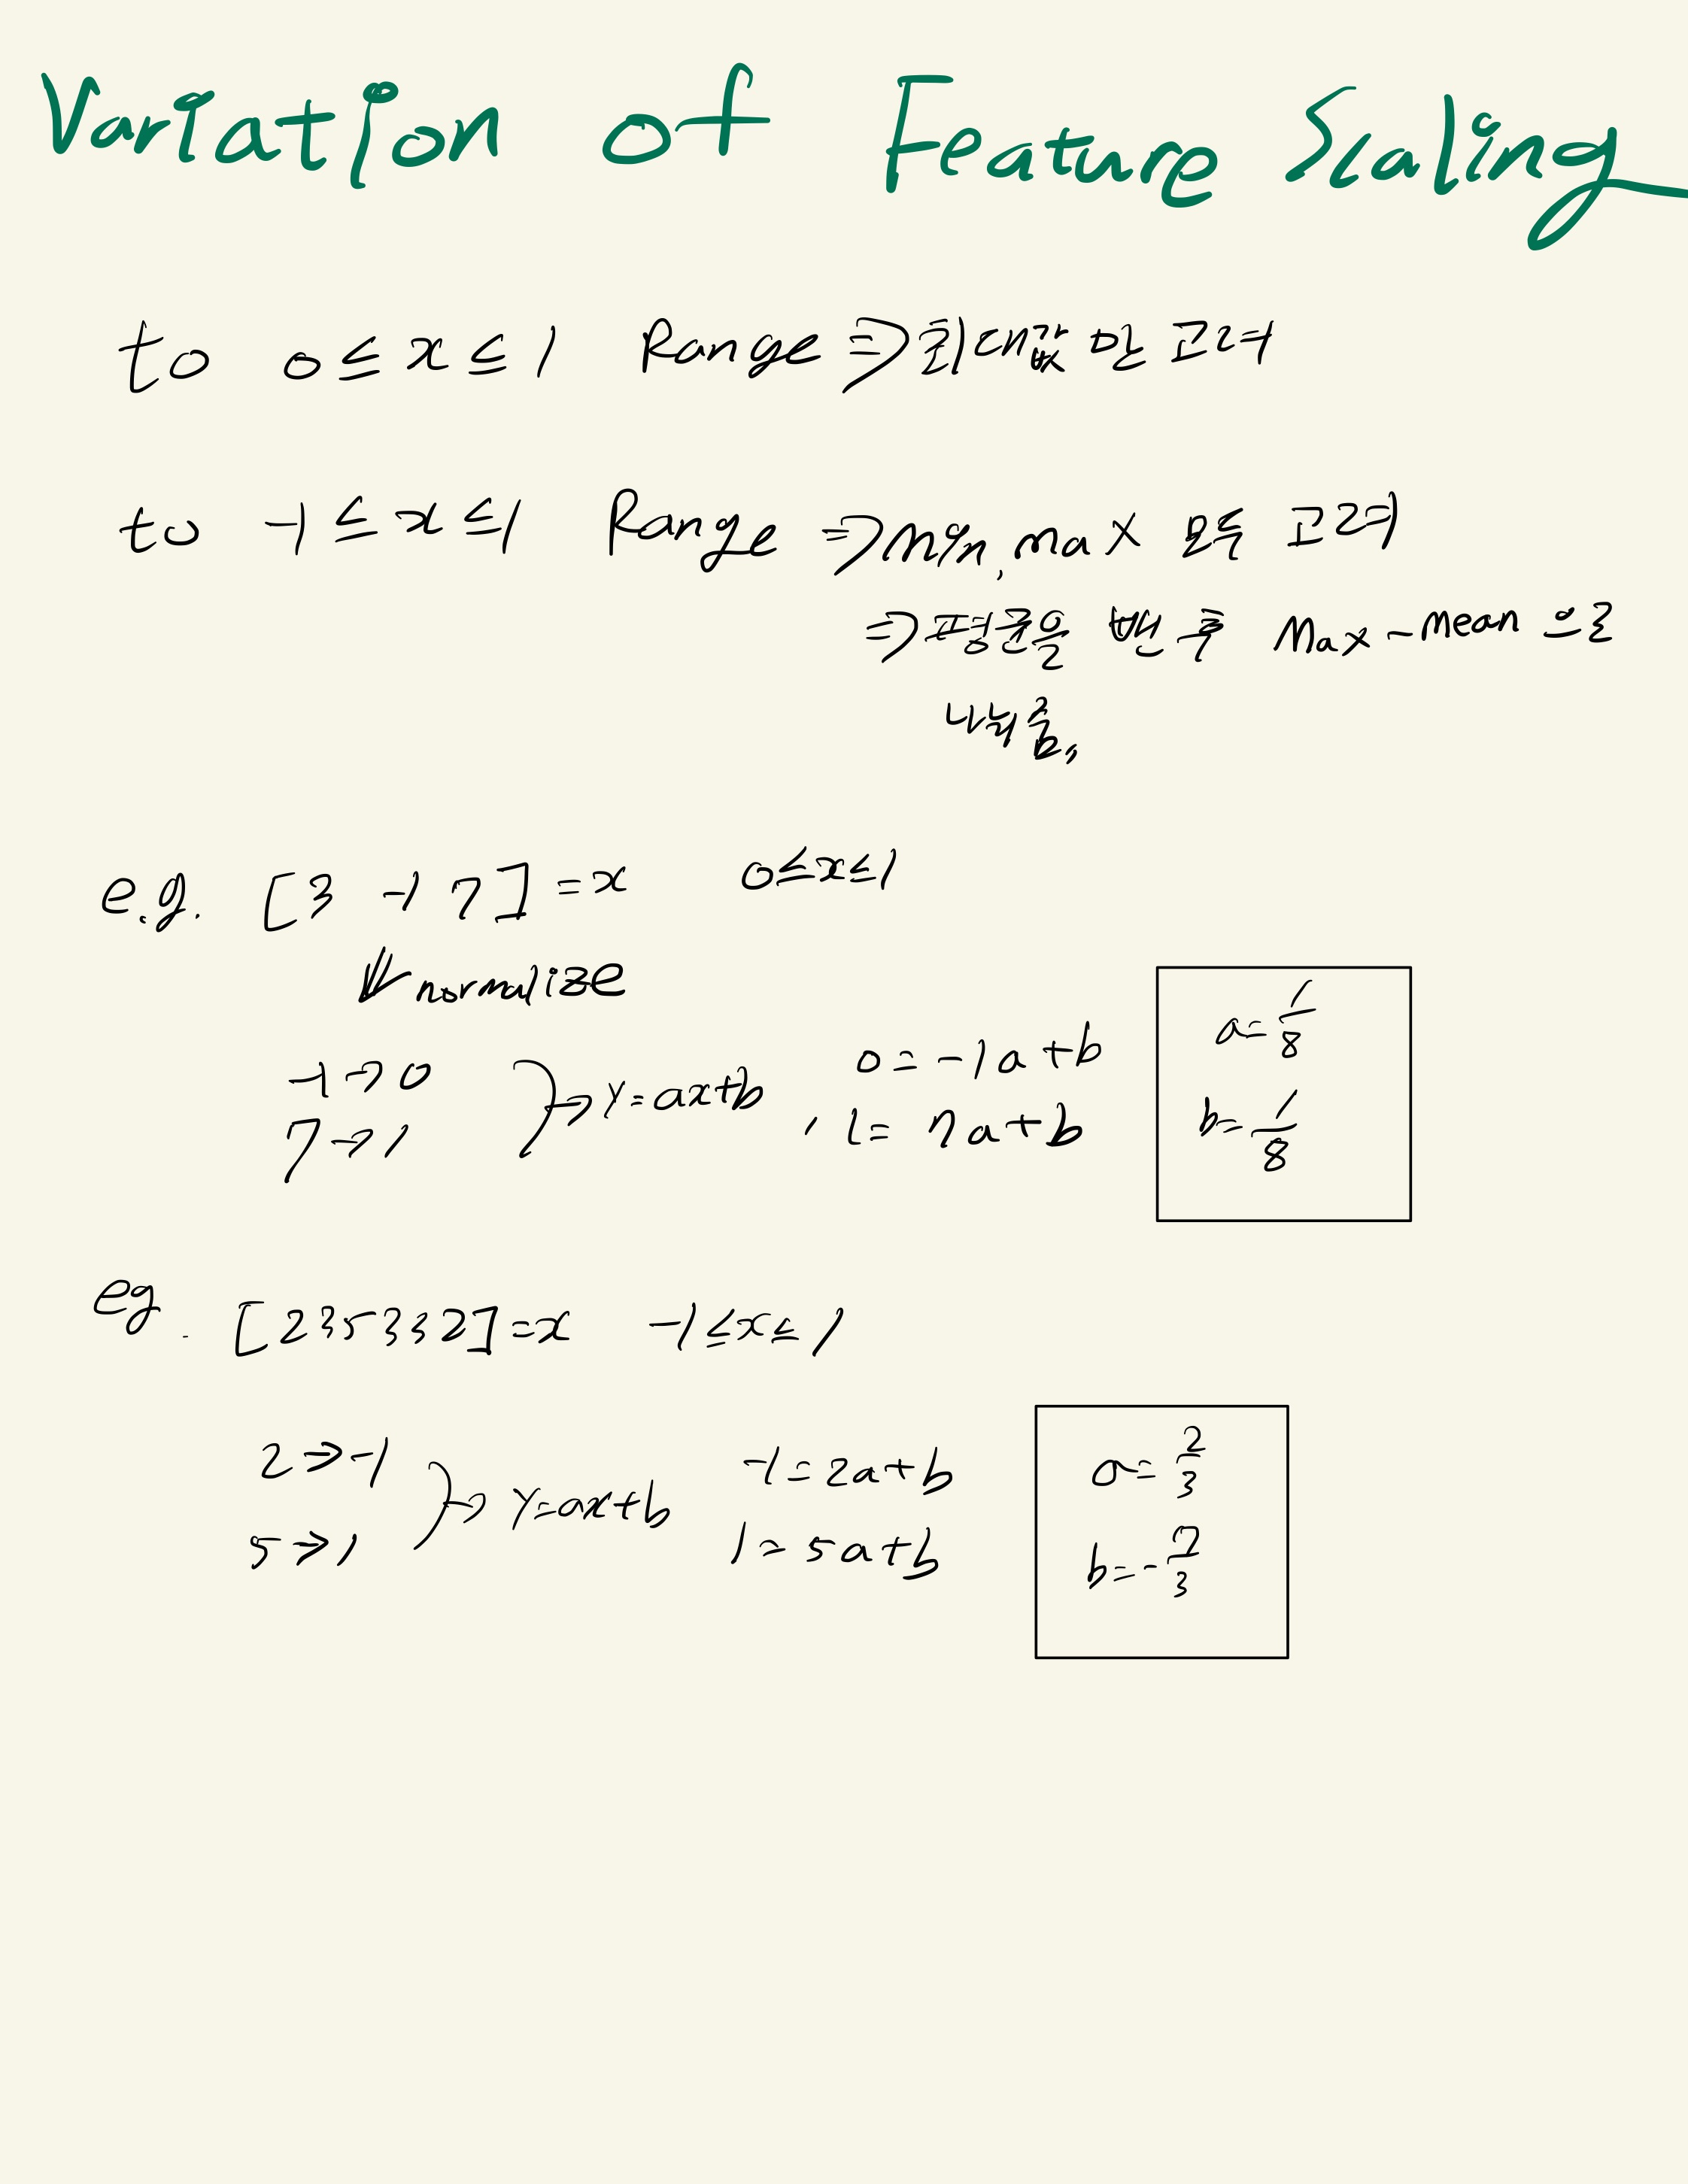 Variation of Feature Scaling
to 0 ≤ x ≤ 1 Range ⇒ 최대값만 고려
to -1 ≤ x ≤ 1 Range ⇒ min, max 모두 고려
⇒ 평균을 뺀 후 Max - mean 으로
나눠줌,
e.g. [3 -1 7] = x 0 ≤ x ≤ 1
⇓ normalize
-1 → 0
7 → 1
→ y = ax+b
0 = -1a + b
, 1 = 7a + b
a = 1/8
b = 1/8
eg. [2 3 5 3 3 2] = x -1 ≤ x ≤ 1
2 → -1
5 → 1
→ y = ax+b
-1 = 2a + b
1 = 5a + b
a = 2/3
b = -7/3